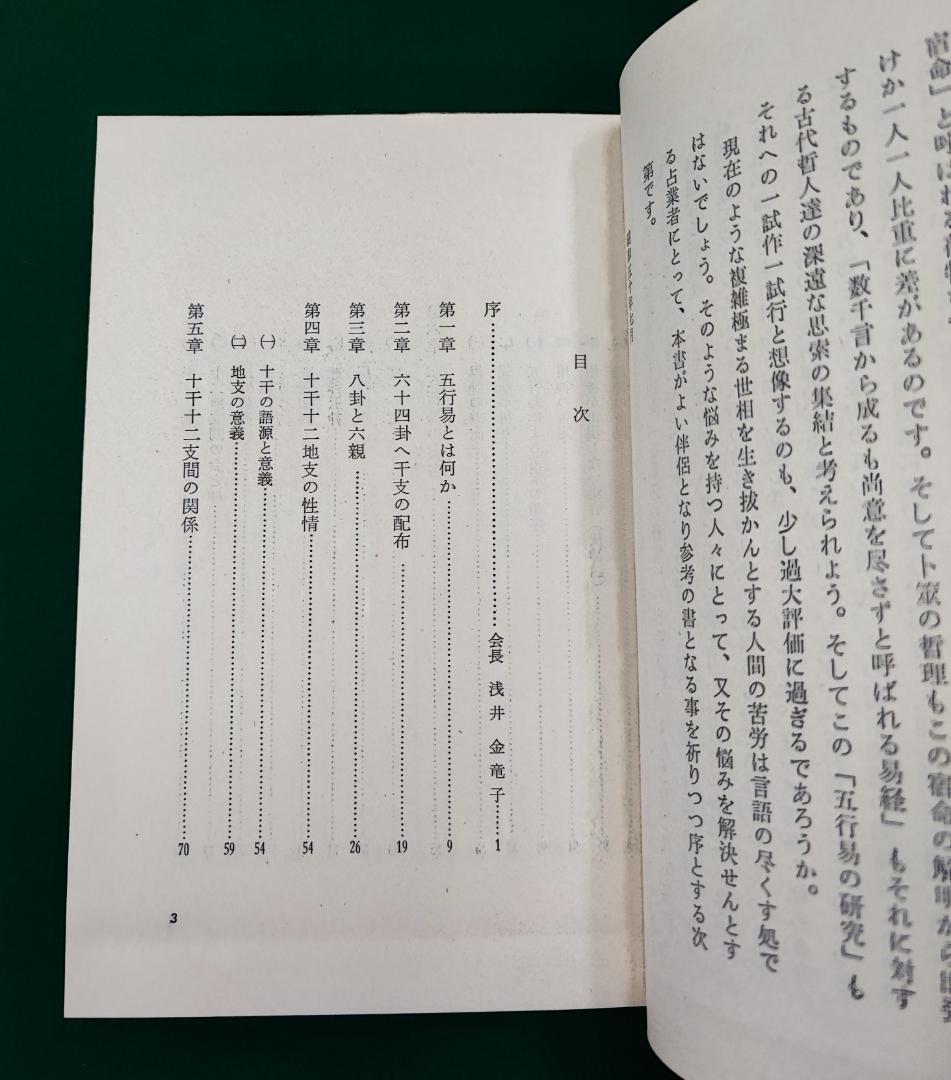 けか一人一人比重に差があるのです。そしてト筮の哲理もこの宿命の解明なら
するものであり、「数千言から成るも尚意を尽さずと呼ばれる易経」もそれに対す
る古代哲人達の深遠な思索の集結と考えられよう。そしてこの「五行易の研究」も
それへの一試作一試行と想像するのも、少し過大評価に過ぎるであろうか。
現在のような複雑極まる世相を生き抜かんとする人間の苦労は言語の尽くす処で
はないでしょう。そのような悩みを持つ人々にとって、又その悩みを解決せんとす
る占業者にとって、本書がよい伴侶となり参考の書となる事を祈りつつ序とする次
第です。
目次
序……………会長 浅井金竜子…1
第一章 五行易とは何か……………9
第二章 六十四卦へ干支の配布……………19
第三章 八卦と六親……………26
第四章 十干十二地支の性情……………54
㈠ 十干の語源と意義……………54
㈡ 地支の意義……………59
第五章 十干十二支間の関係……………70
3